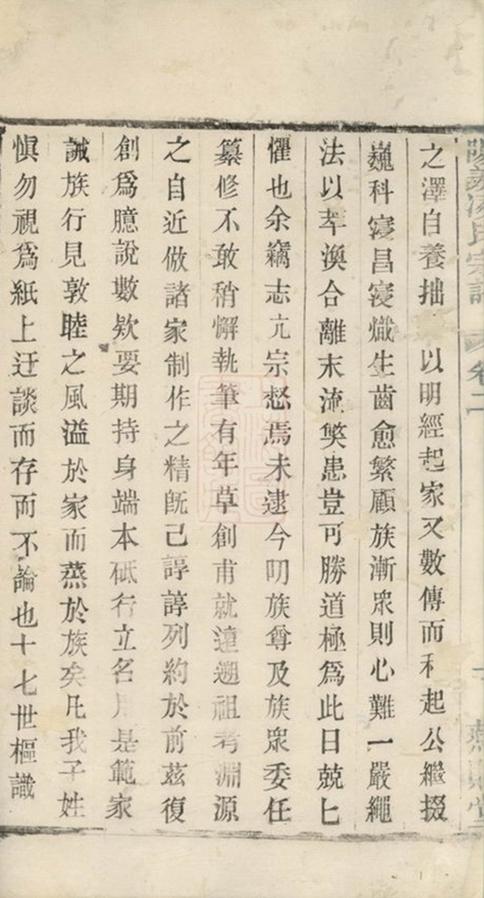 氏宗譜 卷二
之澤自養拙 以明經起家又數傳而 起公繼掇
巍科寖昌寖熾生齒愈繁顧族漸眾則心難一嚴繩
法以萃渙合離末流獘患豈可勝道極爲此日兢匕
懼也余竊志亢宗愁焉未逮今叨族尊及族眾委任
纂修不敢稍懈執筆有年草創甫就遠遡祖考淵源
之自近倣諸家制作之精既已諄諄列約於前茲復
創爲臆說數欵要期持身端本砥行立名用是範家
誡族行見敦睦之風溢於家而蒸於族矣凡我子姓
慎勿視爲紙上迂談而存而不論也十七世樞識